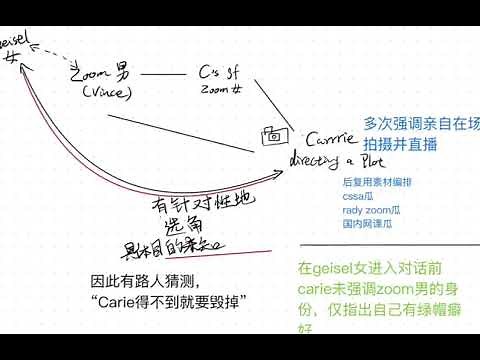 geisel
女
Zoom 男
(Vince)
C's gf
zoom女
Carrrie
directing a Plot
多次强调亲自在场
拍摄并直播
后复用素材编排
cssa瓜
rady zoom瓜
国内网课瓜
有针对性地
选角
具体目的未知
因此有路人猜测，
“Carie得不到就要毁掉”
在geisel女进入对话前
carie未强调zoom男的身
份，仅指出自己有绿帽癖
好